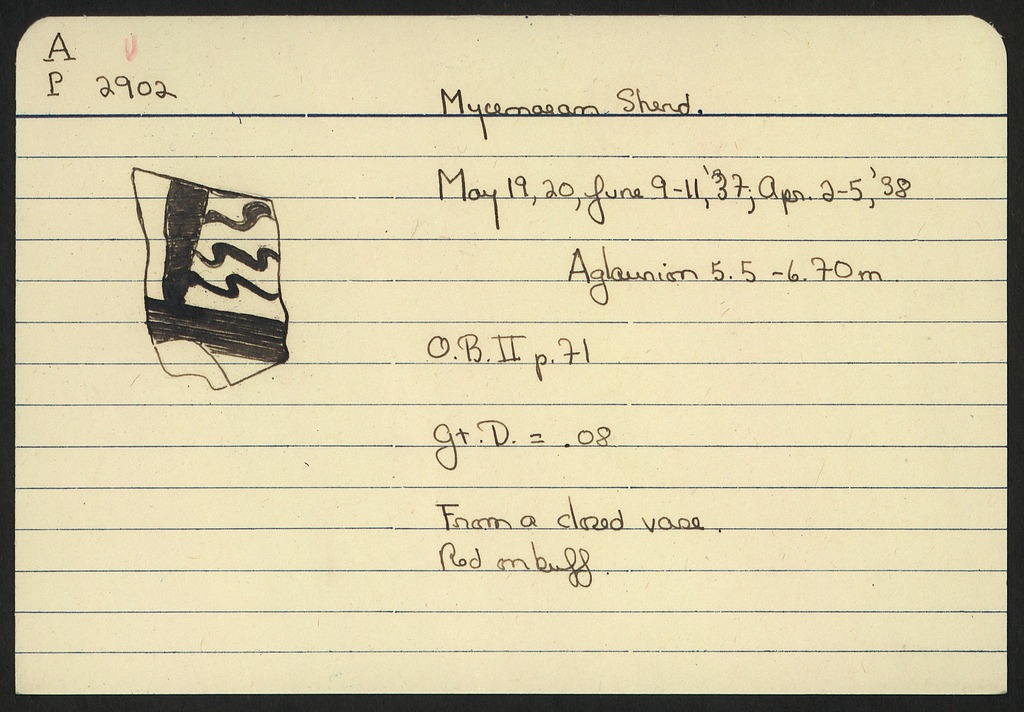 A
P 2902
Mycenaean Sherd.
May 19, 20, June 9-11, '37; Apr. 2-5, '38
Aglaurion 5.5 - 6.70 m
O.B. II p. 71
Gt. D. = .08
From a closed vase.
Red on buff